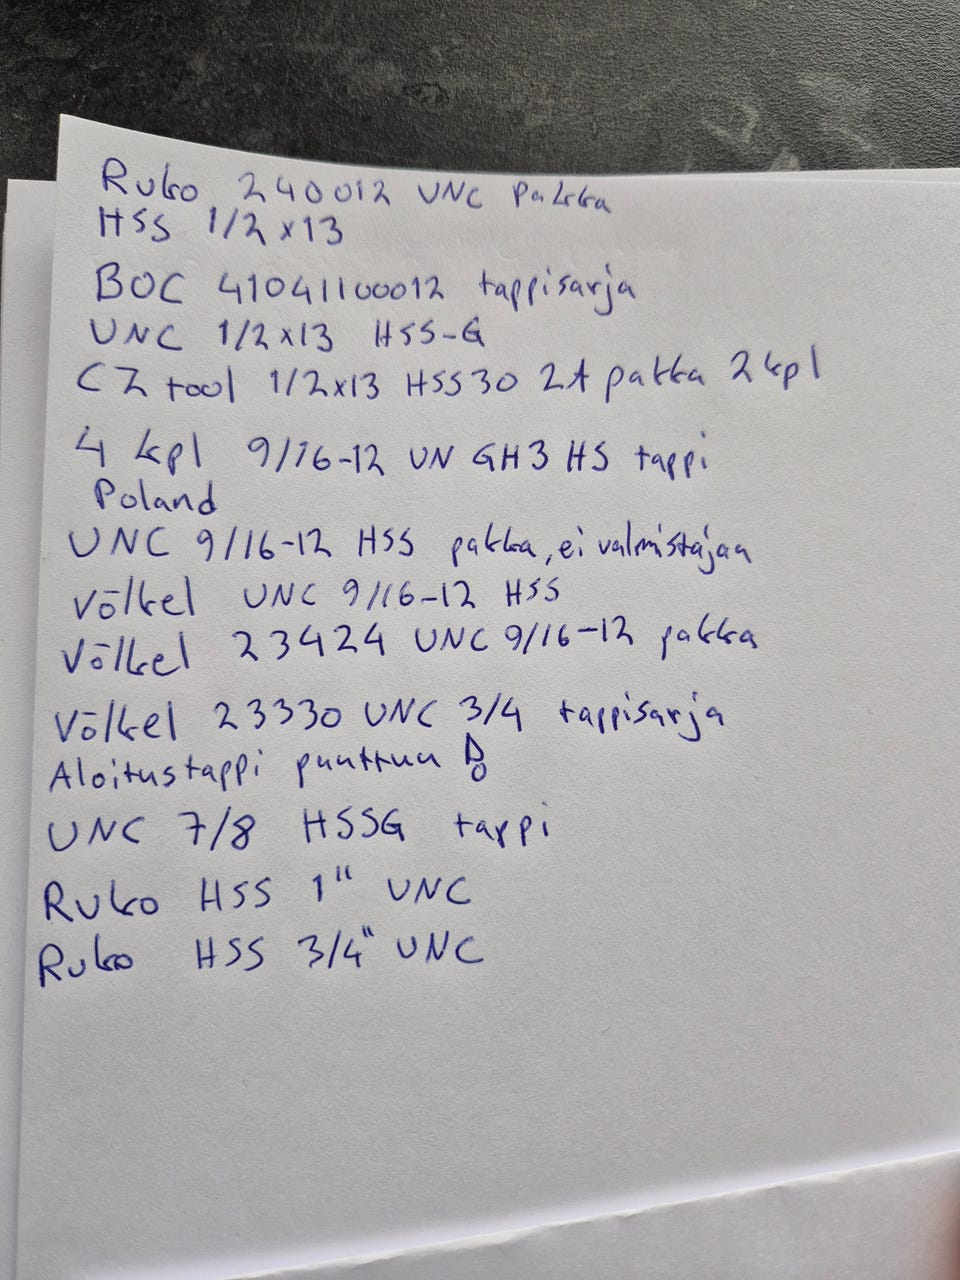 Ruko 240012 UNC pakka
HSS 1/2 x 13
BOC 41041100012 tappisarja
UNC 1/2x13 HSS-G
CZ tool 1/2x13 HSS30 2A pakka 2 kpl
4 kpl 9/16-12 UN GH3 HS tappi
Poland
UNC 9/16-12 HSS pakka, ei valmistajaa
Völkel UNC 9/16-12 HSS
Völkel 23424 UNC 9/16-12 pakka
Völkel 23330 UNC 3/4 tappisarja
Aloitustappi puuttuu !
UNC 7/8 HSSG tappi
Ruko HSS 1" UNC
Ruko HSS 3/4" UNC